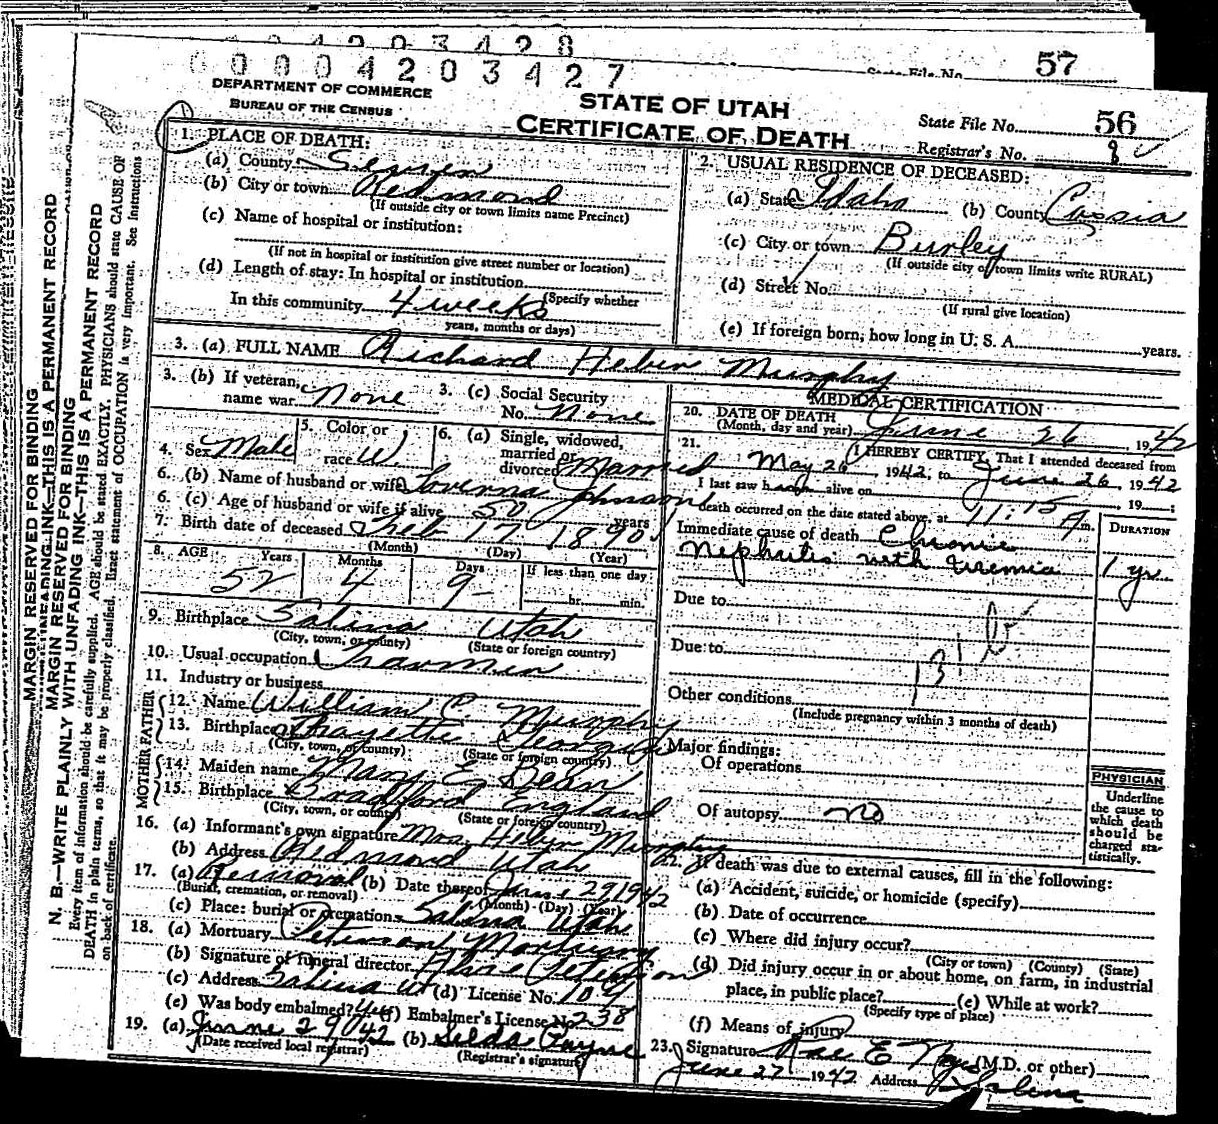 0 0 4 2 0 3 4 2 8
0 0 0 0 4 2 0 3 4 2 7
State File No. 57
DEPARTMENT OF COMMERCE
BUREAU OF THE CENSUS
STATE OF UTAH
CERTIFICATE OF DEATH
State File No. 56
Registrar's No. 8
MARGIN RESERVED FOR BINDING
MARGIN RESERVED FOR BINDING
N. B.—WRITE PLAINLY WITH UNFADING INK—THIS IS A PERMANENT RECORD
Every item of information should be carefully supplied. AGE should be stated EXACTLY. PHYSICIANS should state CAUSE OF
DEATH in plain terms, so that it may be properly classified. Exact statement of OCCUPATION is very important. See instructions
on back of certificate.
1. PLACE OF DEATH:
(a) County Sevier
(b) City or town Redmond
(If outside city or town limits name Precinct)
(c) Name of hospital or institution:
(If not in hospital or institution give street number or location)
(d) Length of stay: In hospital or institution
(Specify whether
In this community 4 weeks
years, months or days)
2. USUAL RESIDENCE OF DECEASED:
(a) State Idaho (b) County Cassia
(c) City or town Burley
(If outside city or town limits write RURAL)
(d) Street No.
(If rural give location)
(e) If foreign born, how long in U. S. A. years.
3. (a) FULL NAME Richard Heber Murphy
3. (b) If veteran, name war None 3. (c) Social Security No. None
4. Sex Male 5. Color or race W. 6. (a) Single, widowed, married or divorced Married
6. (b) Name of husband or wife Loverna Johnson
6. (c) Age of husband or wife if alive 50 years
7. Birth date of deceased Feb 17 1890
(Month) (Day) (Year)
8. AGE Years Months Days If less than one day
52 4 9 hr. min.
9. Birthplace Salina Utah
(City, town, or county) (State or foreign country)
10. Usual occupation
11. Industry or business
MOTHER FATHER
12. Name William C. Murphy
13. Birthplace Fayette Georgia
(City, town, or county) (State or foreign country)
14. Maiden name Mary E. Dean
15. Birthplace Bradford England
(City, town, or county) (State or foreign country)
16. (a) Informant's own signature Mrs. Heber Murphy
(b) Address Redmond Utah
17. (a) Removal (b) Date thereof June 29 1942
(Burial, cremation, or removal) (Month) (Day) (Year)
(c) Place: burial or cremation Salina Utah
18. (a) Mortuary Peterson Mortuary
(b) Signature of funeral director Peterson
(c) Address Salina Ut (d) License No. 104
(e) Was body embalmed? Yes (f) Embalmer's License No. 238
19. (a) June 29 42 (b) Selda Payne
(Date received local registrar) (Registrar's signature)
MEDICAL CERTIFICATION
20. DATE OF DEATH
(Month, day and year) June 26 1942
21. I HEREBY CERTIFY, That I attended deceased from
May 26 1942, to June 26, 1942
I last saw him alive on 19
death occurred on the date stated above, at 11:15 A m.
DURATION
Immediate cause of death Chronic
Nephritis with Uremia 1 yr.
Due to
131 b
Due to
Other conditions
(Include pregnancy within 3 months of death)
Major findings:
Of operations
Of autopsy no
PHYSICIAN
Underline
the cause to
which death
should be
charged sta-
tistically.
22. If death was due to external causes, fill in the following:
(a) Accident, suicide, or homicide (specify)
(b) Date of occurrence
(c) Where did injury occur?
(City or town) (County) (State)
(d) Did injury occur in or about home, on farm, in industrial
place, in public place? (e) While at work?
(Specify type of place)
(f) Means of injury
23. Signature Rae E. Noyes (M.D. or other)
June 27 1942 Address Salina